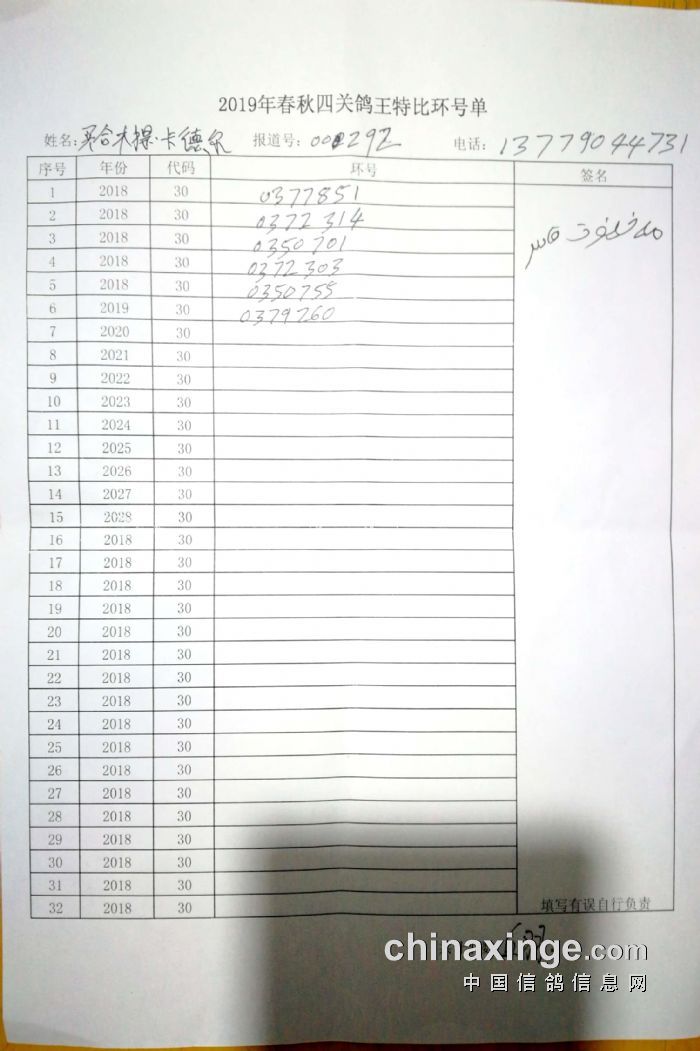 2019年春秋四关鸽王特比环号单
姓名: 买合木提·卡德尔 报道号: 000292 电话: 13779044731
序号 年份 代码 环号 签名
1 2018 30 0377851
2 2018 30 0372314
3 2018 30 0350701
4 2018 30 0372303
5 2018 30 0350755
6 2019 30 0379260
7 2020 30
8 2021 30
9 2022 30
10 2023 30
11 2024 30
12 2025 30
13 2026 30
14 2027 30
15 2028 30
16 2018 30
17 2018 30
18 2018 30
19 2018 30
20 2018 30
21 2018 30
22 2018 30
23 2018 30
24 2018 30
25 2018 30
26 2018 30
27 2018 30
28 2018 30
29 2018 30
30 2018 30
31 2018 30
32 2018 30 填写有误自行负责
chinaxinge.com
中国信鸽信息网